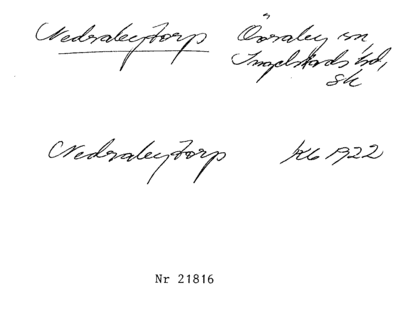 Nedraleytorp Övraley sn,
Ingelstads hd,
Sk
Nedraleytorp Kb 1922
Nr 21816